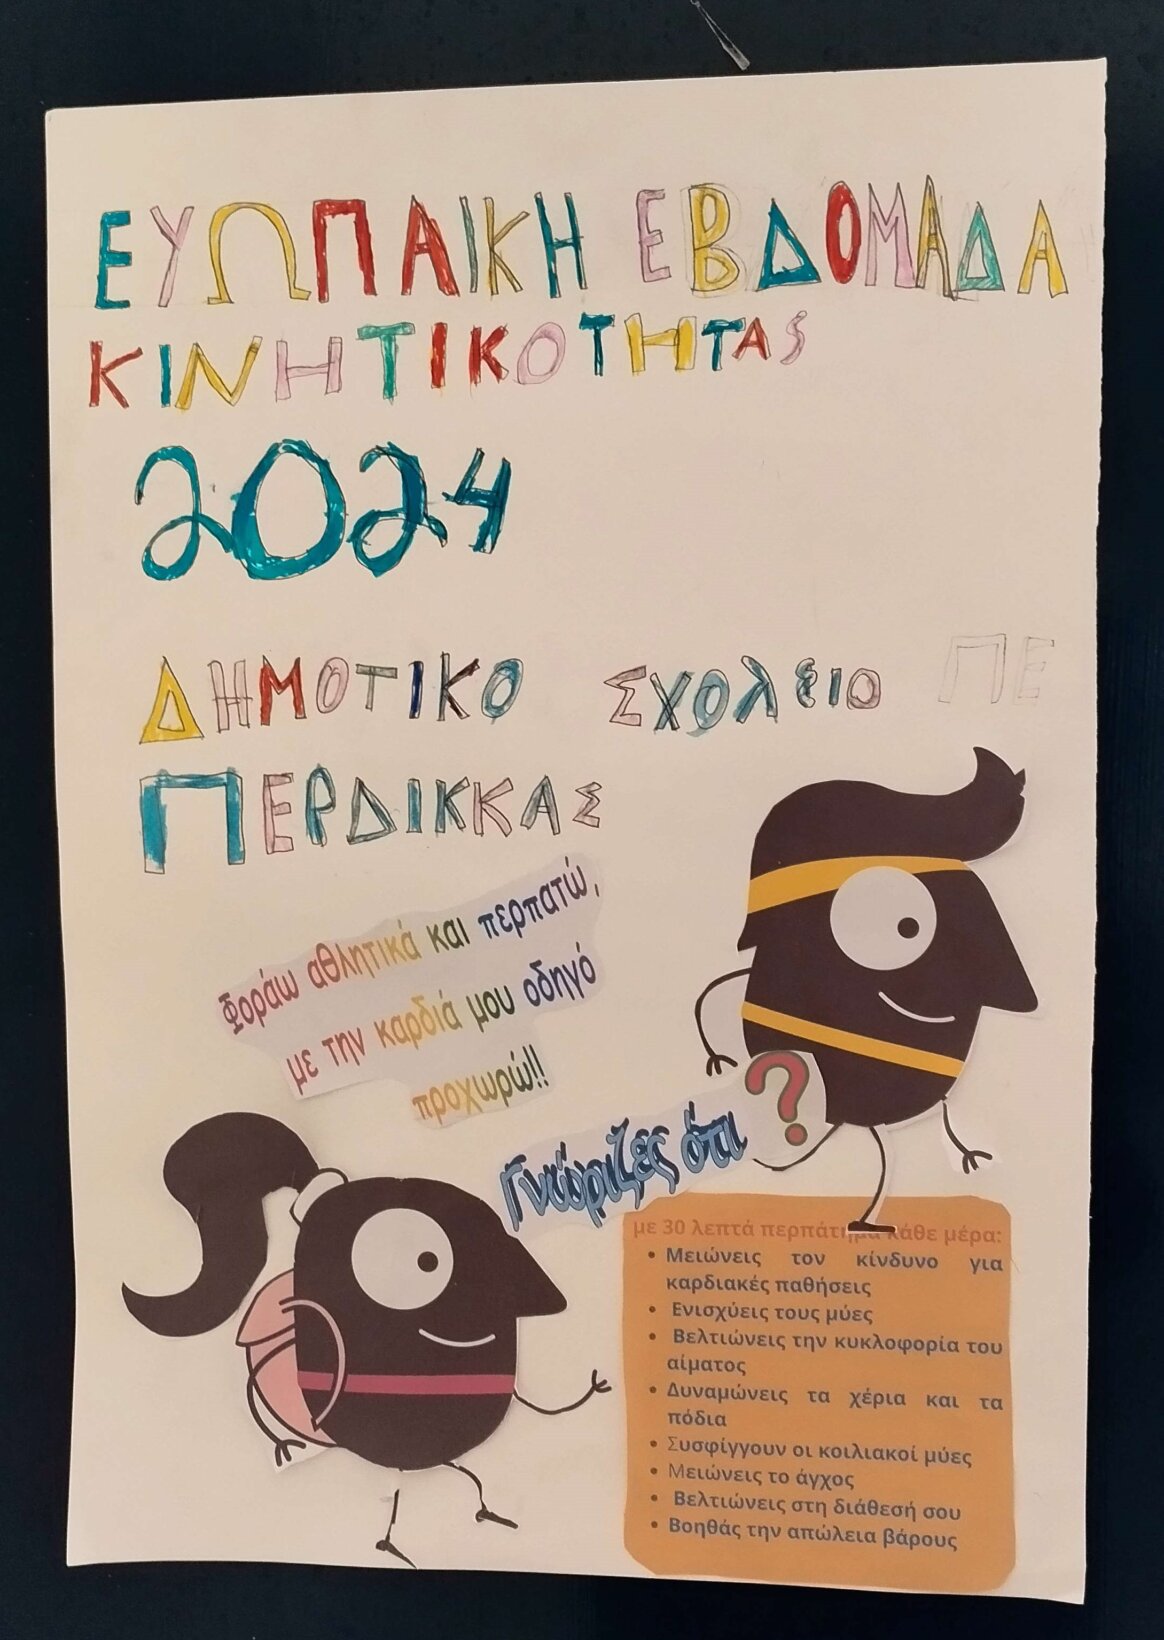 ΕΥΩΠΑΙΚΗ ΕΒΔΟΜΑΔΑ
ΚΙΝΗΤΙΚΟΤΗΤΑΣ
2024
ΔΗΜΟΤΙΚΟ ΣΧΟΛΕΙΟ ΠΕ
ΠΕΡΔΙΚΚΑΣ
Φοράω αθλητικά και περπατώ,
με την καρδιά μου οδηγό
προχωρώ!!
Γνώριζες ότι ?
με 30 λεπτά περπάτημα κάθε μέρα:
• Μειώνεις τον κίνδυνο για
καρδιακές παθήσεις
• Ενισχύεις τους μύες
• Βελτιώνεις την κυκλοφορία του
αίματος
• Δυναμώνεις τα χέρια και τα
πόδια
• Συσφίγγουν οι κοιλιακοί μύες
• Μειώνεις το άγχος
• Βελτιώνεις στη διάθεσή σου
• Βοηθάς την απώλεια βάρους